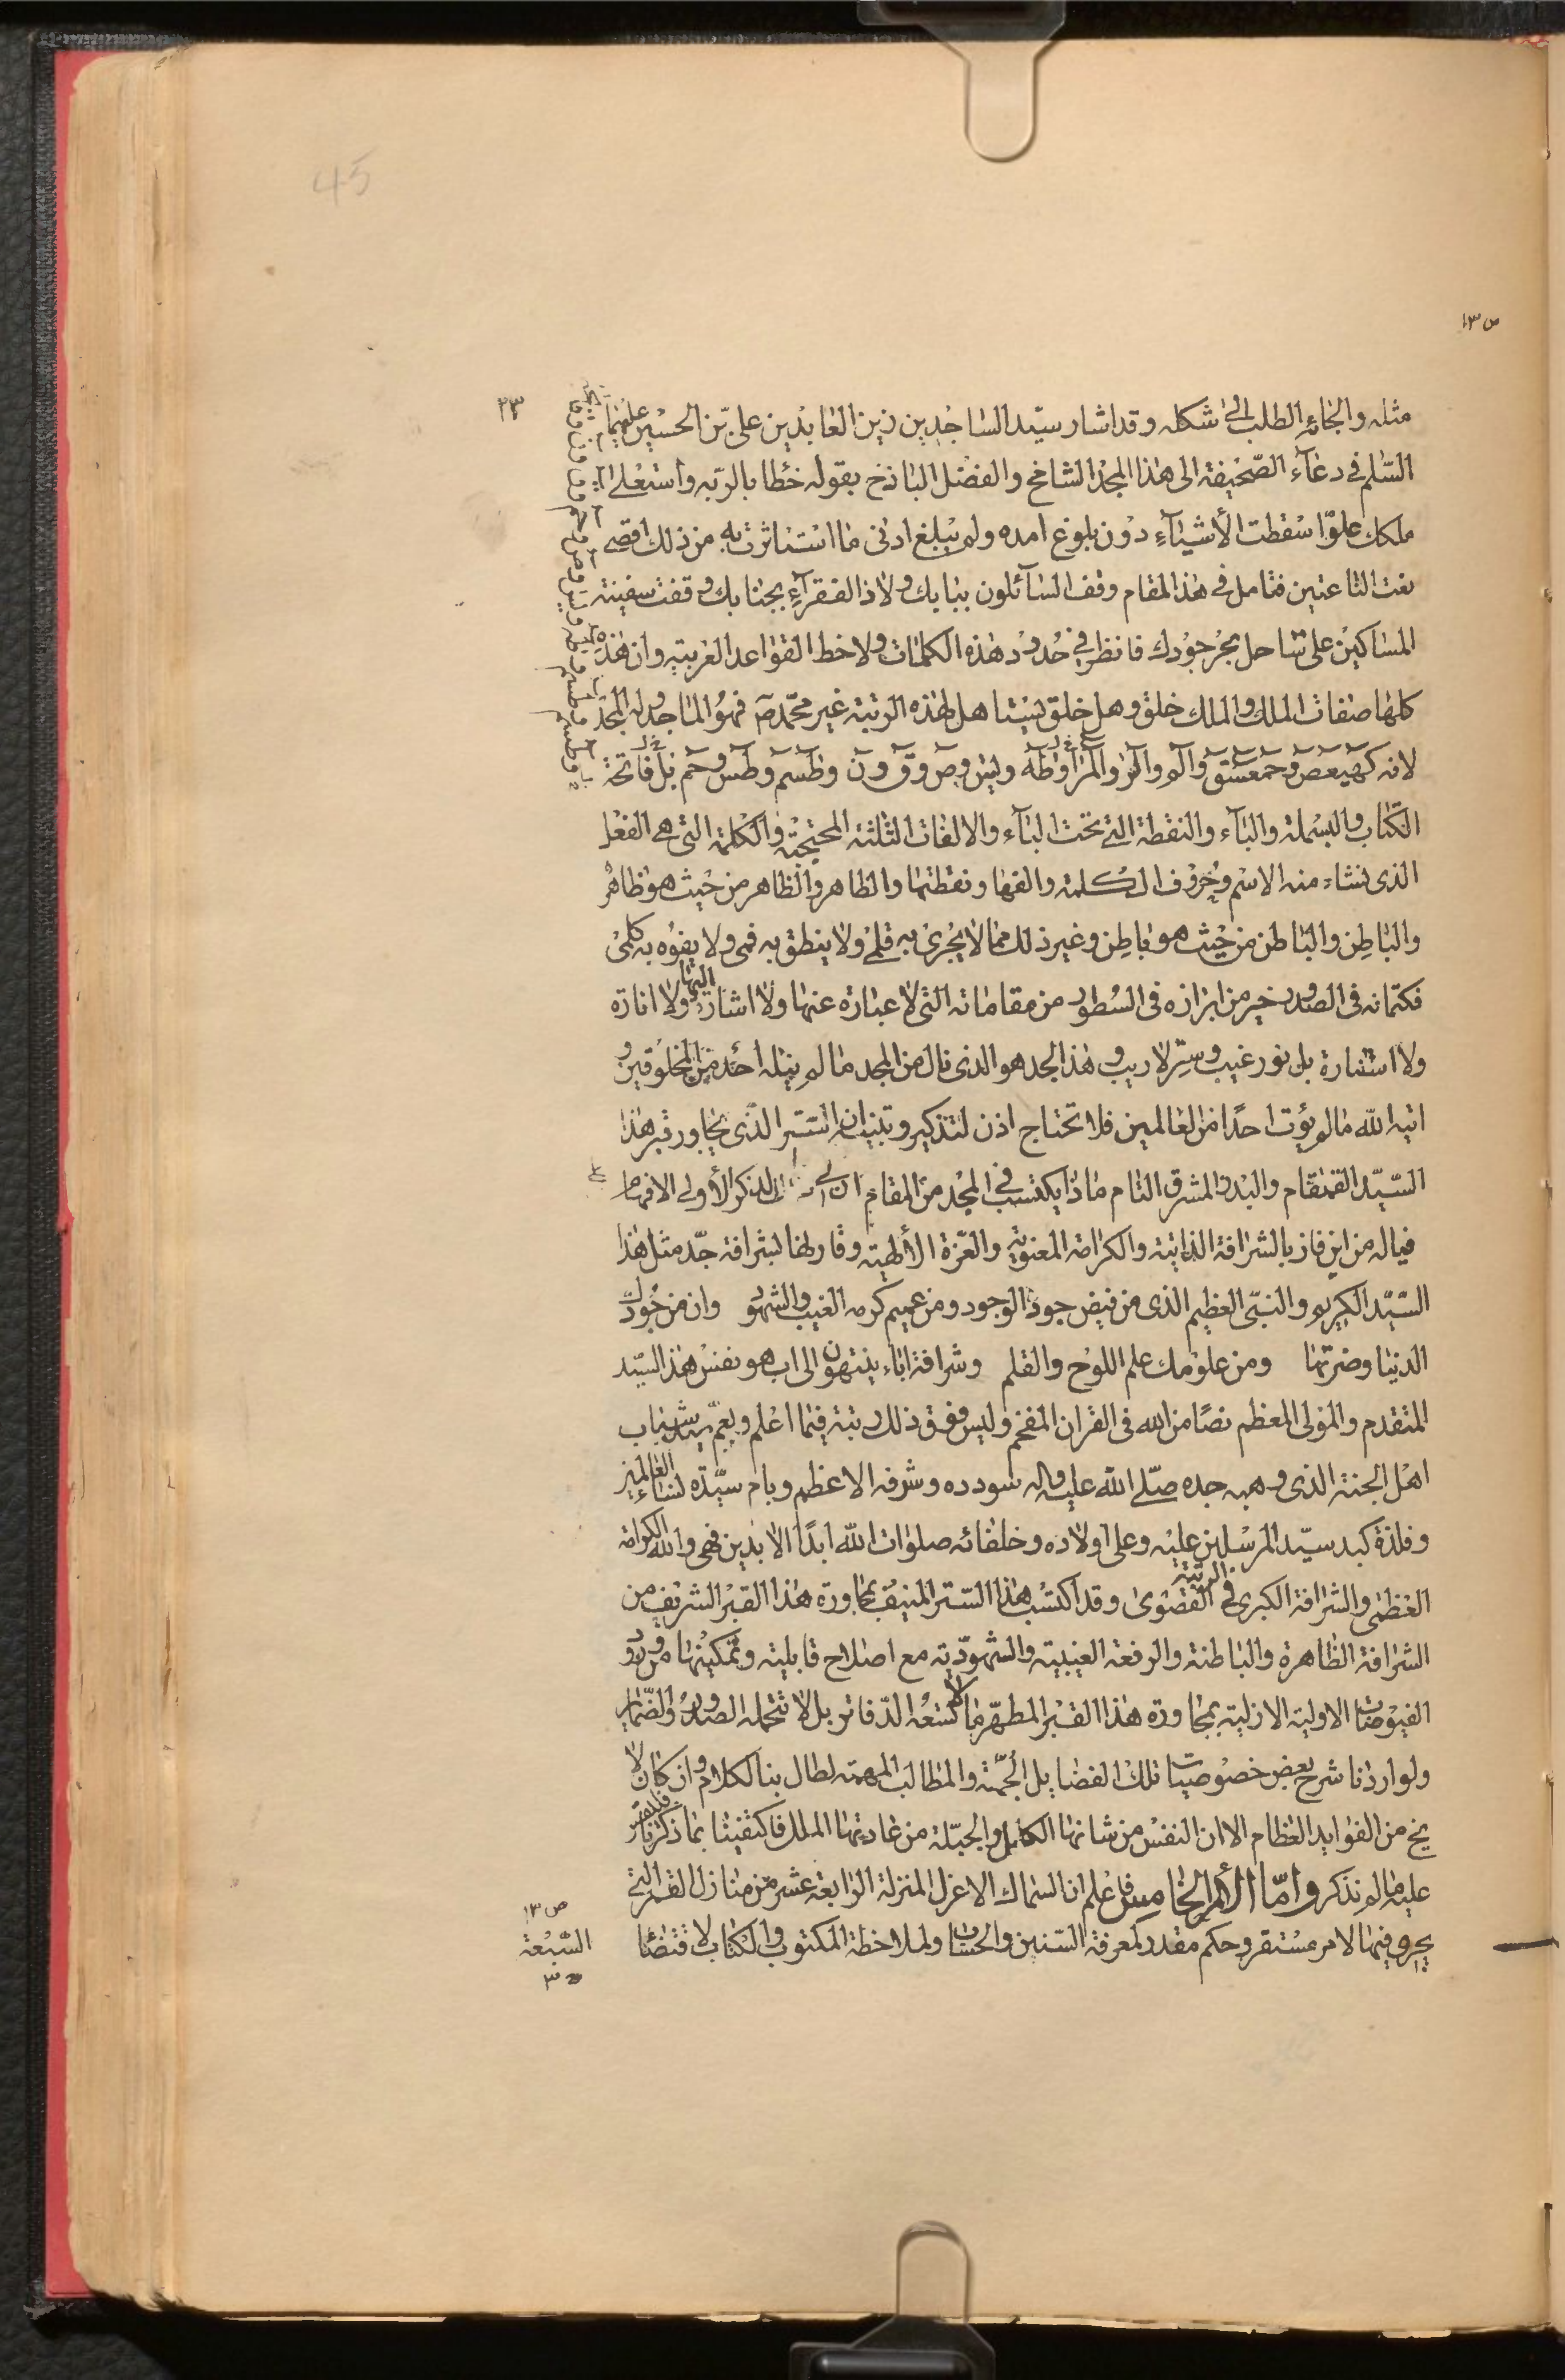 45
ص ١٣
٢٣
مثله والجائه الطلب الى شكله وقد اشار سيّد الساجدين زين العابدين على بن الحسين عليهما
السّلم في دعآء الصّحيفة الى هذا المجد الشامخ والفضل الباذخ بقوله خطابا لربّه واستعلى
ملكك علوّا سقطت الأشيآء دون بلوغ امده ولم يبلغ ادنى ما استاثرت به من ذلك اقصى
نعت الناعتين فتامل في هذا المقام وقف السآئلون ببابك ولاذ الفقرآء بجنابك وقفت سفينة
المساكين على ساحل بحر جودك فانظر في حدود هذه الكلمات ولاحظ القواعد العربية وان هذه
كلها صفات الملك والملك خلق وهل خلق يستاهل لهذه الرتبة غير محمّد ص فهو الماجد وله المجد
لانه كهيعص وحمعسق والم والر والمر وطه ويس وص وق ون وطسم وطس وحم بل فاتحة
الكتاب والبسملة والبآء والنقطة التي تحت البآء والالفات الثلثة المحتجبة والكلمة التي هي الفعل
الذى نشاء منه الاسم وحروف الكلمة والفها ونقطتها والظاهر والظاهر من حيث هو ظاهر
والباطن والباطن من حيث هو باطن وغير ذلك مما لا يجرى به قلمى ولا ينطق به فمى ولا يفوه به كلمى
فكتمانه فى الصدور خير من ابرازه فى السطور من مقاماته التى لا عبارة عنها ولا اشارة اليها ولا انارة
ولا استنارة بل نور غيب وسرّ لا ريب وهذا الجد هو الذى نال من المجد ما لم ينله احد من المخلوقين و
اتيه الله ما لم يؤت احدًا من العالمين فلا تحتاج اذن لتذكير وتبيان ان الستر الذى يجاور قبر هذا
السيّد القمقام والبدر المشرق التام ماذا يكتسب في المجد من المقام الذكر الأولى الافهام
فياله من اين فاز بالشرافة الذاتية والكرامة المعنوية والعزة الألهية وقارنها لشرافة جدّ مثل هذا
السّيّد الكريم والنبىّ العظيم الذى من فيض جوده الوجود ومن عميم كرمه الغيب والشهود وان من جودك
الدنيا وضرتها ومن علومك علم اللوح والقلم وشرافة اباء ينتهون الى اب هو نفس هذا السيّد
المتقدم والمولى المعظم نصًا من الله فى القران المفخم وليس فوق ذلك رتبة فيما اعلم وبعمّ سيد شباب
اهل الجنة الذى وهبه جده صلّى الله عليه واله سودده وشرفه الاعظم وبام سيّدة نساء العالمين
وفلذة كبد سيّد المرسلين عليه وعلى اولاده وخلفائه صلوات الله ابدًا الابدين فهى والله الكرامة
العظمى والشرافة الكبرى فى الرتبة القصوى وقد اكتسب هذا السّتر المنيف بمجاورة هذا القبر الشريف من
الشرافة الظاهرة والباطنة والرفعة الغيبية والشهوديّة مع اصلاح قابليته وتمكينها من ورود
الفيوضات الاولية الازلية بمجاورة هذا القبر المطهّر ما لا تسعه الدّفاتر بل لا تتحمله الصدور والضماير
ولو اردنا شرح بعض خصوصيات تلك الفضايل الجمّة والمطالب المهمة لطال بنا الكلام وان كان لا
يخ من الفوايد العظام الا ان النفس من شانها الكلل والجبّلة من عادتها الملل فاكتفينا بما ذكرنا فليقس
عليه ما لم نذكر واما الأمر الخامس فاعلم ان السماك الاعزل المنزلة الرابعة عشر من منازل القمر التى
يجرى فيها الامر مستقر وحكم مقدر لمعرفة السّنين والحساب ولملاحظة المكتوب والكتاب لاقتضاء
ص ١٣
السّبعة